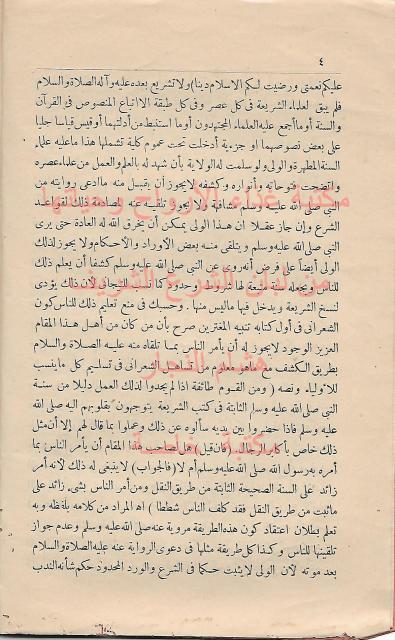 ٤
عليكم نعمتى ورضيت لكم الاسلام دينا) ولا تشريع بعده عليه وآله الصلاة والسلام
فلم يبق لعلماء الشريعة فى كل عصر وفى كل طبقة الا اتباع المنصوص فى القرآن
والسنة أو ما أجمع عليه العلماء المجتهدون أو ما استنبط من أدلتهما أو قيس قياسا جليا
على بعض نصوصهما أو جزئية أدخلت تحت عموم كلية تشملها هذا ما عليه علماء
السنة المطهرة والولى ولو سلمت له الولاية بأن شهد له بالعلم والعمل من علماء عصره
واتضحت فتوحاته وأنواره وكشفه لا يجوز أن يقبل منه ما ادعى روايته عن
النبى صلى الله عليه وسلم مشافهة ولا يجوز تلقينه عنه لمصادمة ذلك لقواعد
الشرع وإن جاز عقلا ان هذا الولى يمكن أن يخرق الله له العادة حتى يرى
النبى صلى الله عليه وسلم ويتلقى منه بعض الأوراد والأحكام ولا يجوز لذلك
الولى أيضا على فرض أنه روى عن النبى صلى الله عليه وسلم كشفا أن يعلم ذلك
للناس ويجعله سنة متبعة لها شروط وحدود كما نسب للتيجانى لأن ذلك يؤدى
لنسخ الشريعة ويدخل فيها ما ليس منها . وحسبك فى منع تعليم ذلك للناس كون
الشعرانى فى أول كتابه تنبيه المغترين صرح بأن من كان من أهل هذا المقام
العزيز الوجود لا يجوز له أن يأمر الناس بما تلقاه منه عليه الصلاة والسلام
بطريق الكشف مع ما هو معلوم من تساهل الشعرانى فى تسليم كل ما ينسب
للأولياء ونصه (ومن القوم طائفة اذا لم يجدوا لذلك العمل دليلا من سنة
النبى صلى الله عليه وسلم الثابتة فى كتب الشريعة يتوجهون بقلوبهم اليه صلى الله
عليه وسلم فاذا حضروا بين يديه سألوه عن ذلك وعملوا بما قال لهم إلا أن مثل
ذلك خاص بأكابر الرجال (فان قيل) فهل لصاحب هذا المقام أن يأمر الناس بما
أمره به رسول الله صلى الله عليه وسلم أم لا (فالجواب) لا ينبغى له ذلك لأنه أمر
زائد على السنة الصحيحة الثابتة من طريق النقل ومن أمر الناس بشىء زائد على
ماثبت من طريق النقل فقد كلف الناس شططا) اه المراد من كلامه بلفظه وبه
تعلم بطلان اعتقاد كون هذه الطريقة مروية عنه صلى الله عليه وسلم وعدم جواز
تلقينها للناس وكذا كل طريقة مثلها فى دعوى الرواية عنه عليه الصلاة والسلام
بعد موته لان الولى لا يثبت حكما فى الشرع والورد المحدود حكم شأنه الندب